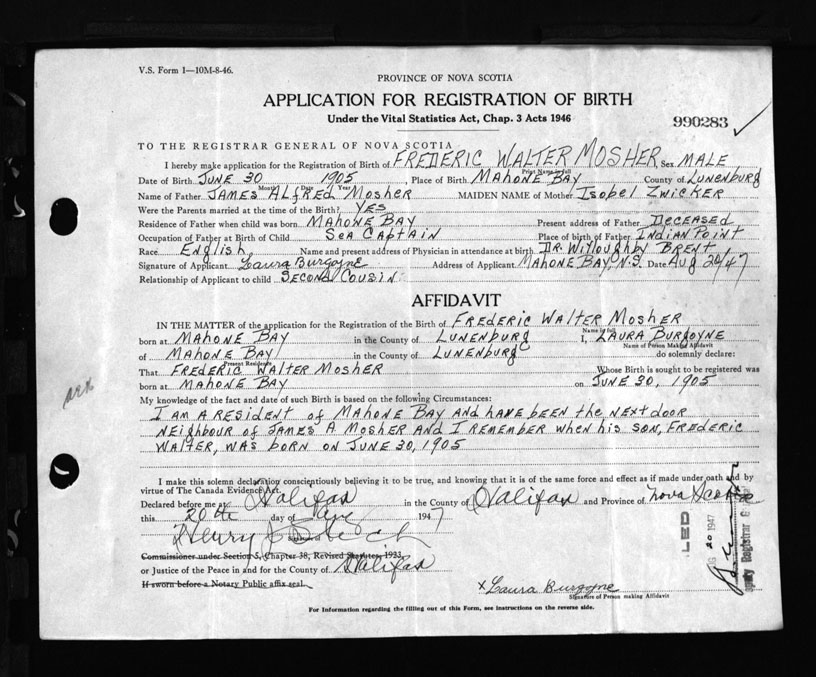 V.S. Form 1—10M-8-46.
PROVINCE OF NOVA SCOTIA
APPLICATION FOR REGISTRATION OF BIRTH
Under the Vital Statistics Act, Chap. 3 Acts 1946
990283
TO THE REGISTRAR GENERAL OF NOVA SCOTIA
I hereby make application for the Registration of Birth of FREDERIC WALTER MOSHER, Sex MALE
Print Name in full
Date of Birth JUNE 30 1905 Place of Birth MAHONE BAY County of LUNENBURG
Month Date Year
Name of Father JAMES ALFRED MOSHER MAIDEN NAME of Mother ISOBEL ZWICKER
Were the Parents married at the time of the Birth? YES
Residence of Father when child was born MAHONE BAY Present address of Father DECEASED
Occupation of Father at Birth of Child SEA CAPTAIN Place of birth of Father INDIAN POINT
Race English Name and present address of Physician in attendance at birth DR. WILLOUGHBY BRENT,
Signature of Applicant Laura Burgoyne Address of Applicant MAHONE BAY, N.S. Date Aug 20/47
Relationship of Applicant to child SECOND COUSIN
AFFIDAVIT
IN THE MATTER of the application for the Registration of the Birth of FREDERIC WALTER MOSHER
Name in full
born at MAHONE BAY in the County of LUNENBURG I, LAURA BURGOYNE
Name of Person Making Affidavit
of MAHONE BAY in the County of LUNENBURG do solemnly declare:
Present Residence
That FREDERIC WALTER MOSHER Whose Birth is sought to be registered was
born at MAHONE BAY on JUNE 30, 1905
My knowledge of the fact and date of such Birth is based on the following Circumstances:
I AM A RESIDENT of MAHONE BAY AND HAVE BEEN the NEXT DOOR
NEIGHBOUR of JAMES A MOSHER AND I REMEMBER WHEN his SON, FREDERIC
WALTER, WAS BORN ON JUNE 30, 1905
I make this solemn declaration conscientiously believing it to be true, and knowing that it is of the same force and effect as if made under oath and by
virtue of The Canada Evidence Act.
Declared before me at Halifax in the County of Halifax and Province of Nova Scotia
this 20th day of Aug 1947
Henry
Commissioner under Section 5, Chapter 38, Revised Statutes, 1923,
or Justice of the Peace in and for the County of Halifax
If sworn before a Notary Public affix seal.
x Laura Burgoyne
Signature of Person making Affidavit
For Information regarding the filling out of this Form, see instructions on the reverse side.
LED
20 1947
Registrar